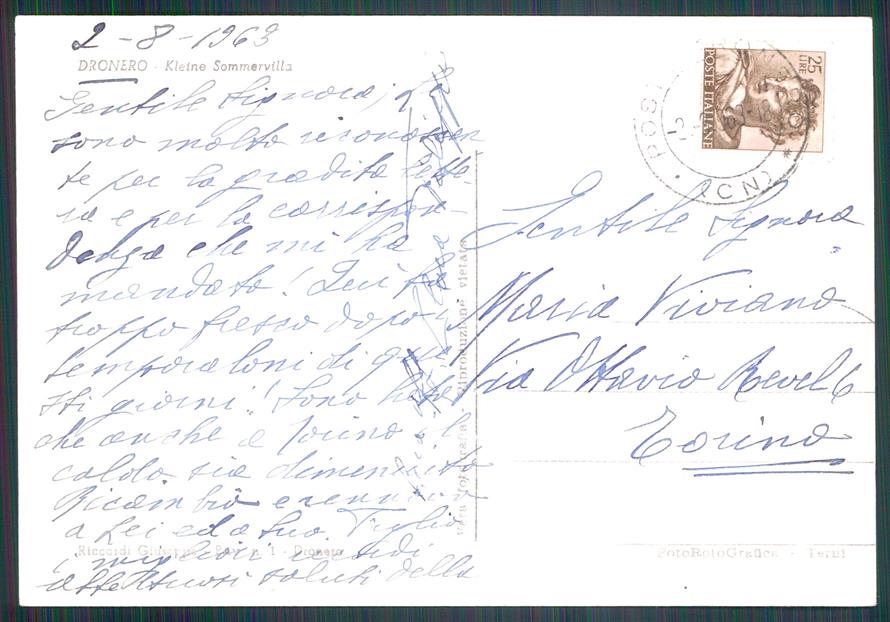 2-8-1963
DRONERO - Kleine Sommervilla
Gentile Signora, Le
sono molto riconoscen
te per la gradita lette-
ra e per la corrispon-
denza che mi ha
mandato! Qui fa
troppo fresco dopo i
temporaloni di que
sti giorni! Sono lieta
che anche a Torino il
caldo sia diminuito
Ricambio
a Lei ed a suo Figlio
i migliori
affettuosi saluti della
Riccardi Giuseppe - Riv. n. 1 - Dronero
Vera Fotografia - Riproduzione vietata
POSTE ITALIANE
25 LIRE
(CN)
Gentile Signora
Maria Viviano
Via Ottavio Revel 6
Torino
FotoRotoGrafica - Terni